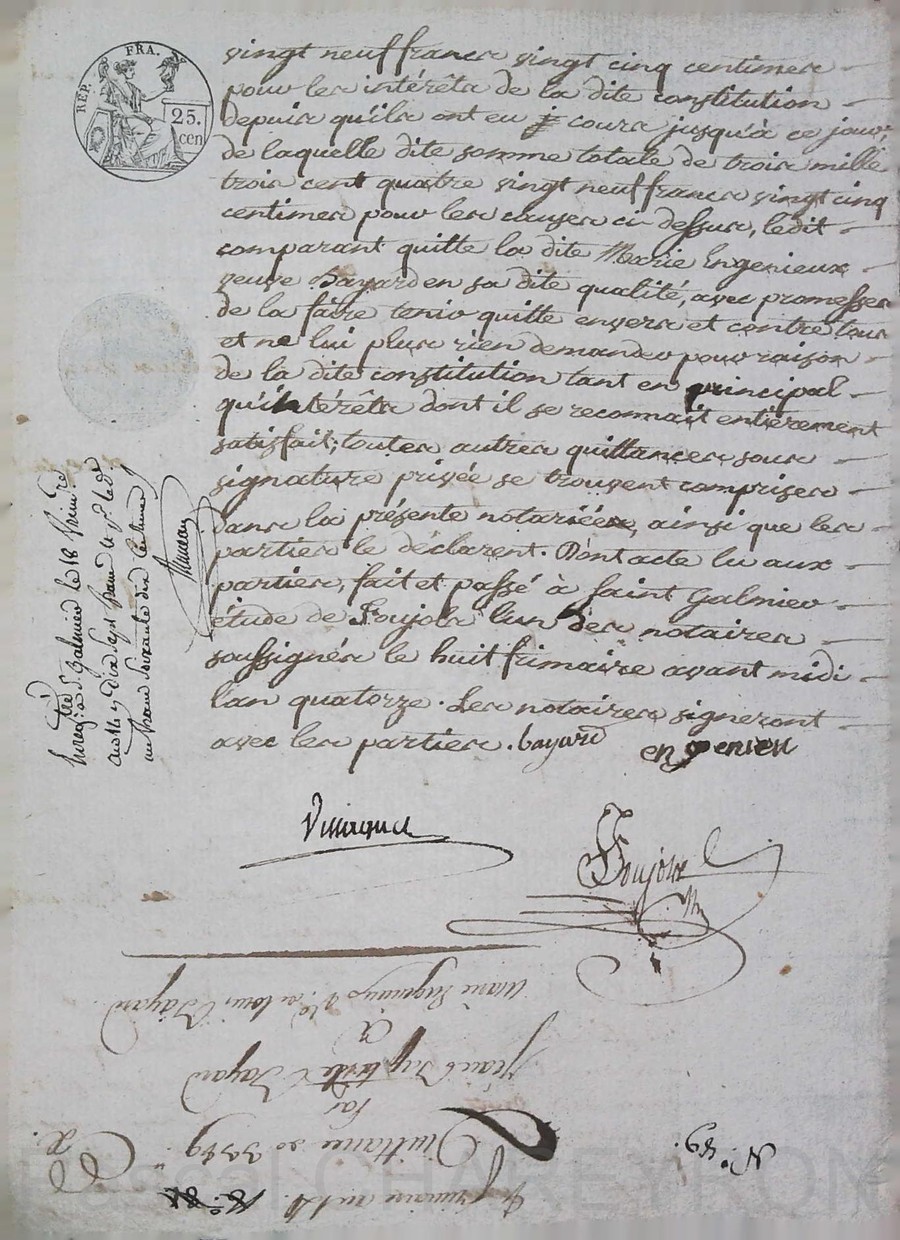 REP. FRA.
25.
cen
vingt neuf francs vingt cinq centimes
pour les intérêts de la dite constitution
depuis qu'ils ont eu cours jusqu'à ce jour.
de laquelle dite somme totale de trois mille
trois cent quatre vingt neuf francs vingt cinq
centimes pour les causes ci dessus, ledit
comparant quitte la dite Marie Ingenieux
veuve Bayard en sa dite qualité, avec promesses
de la faire tenir quitte envers et contre tous
et ne lui plus rien demander pour raison
de la dite constitution tant en principal
qu'intérêts dont il se reconnait entièrement
satisfait; toutes autres quittances sous
signature privée se trouvent comprises
dans la présente notariée, ainsi que les
parties le déclarent. Dont acte lu aux
parties, fait et passé à Saint Galmier
étude de Foujols l'un des notaires
soussignés le huit frimaire avant midi
l'an quatorze. Les notaires signeront
avec les parties. bayard engenieu
Foujols
Enreg. à St. Galmier le 18 frimaire
an 14
Marie Ingenieux Ve. de Louis Bayard
à
Jean Bayard
Par
Quittance de 3389.
8 frimaire an 14.
N.° 59.